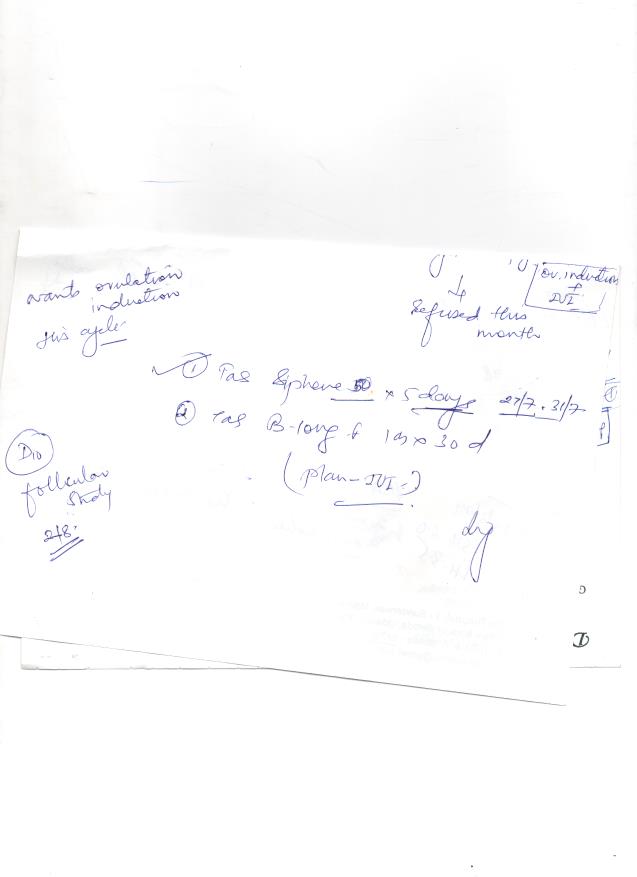 wants ovulation
induction
this cycle
Ov. induction
+
IUI
↓
Refused this
month
① Tab Siphene 50 x 5 days 27/7 - 31/7
② Tab B-long F x 30 d
(plan - IUI -)
D10
follicular
study
2/8.